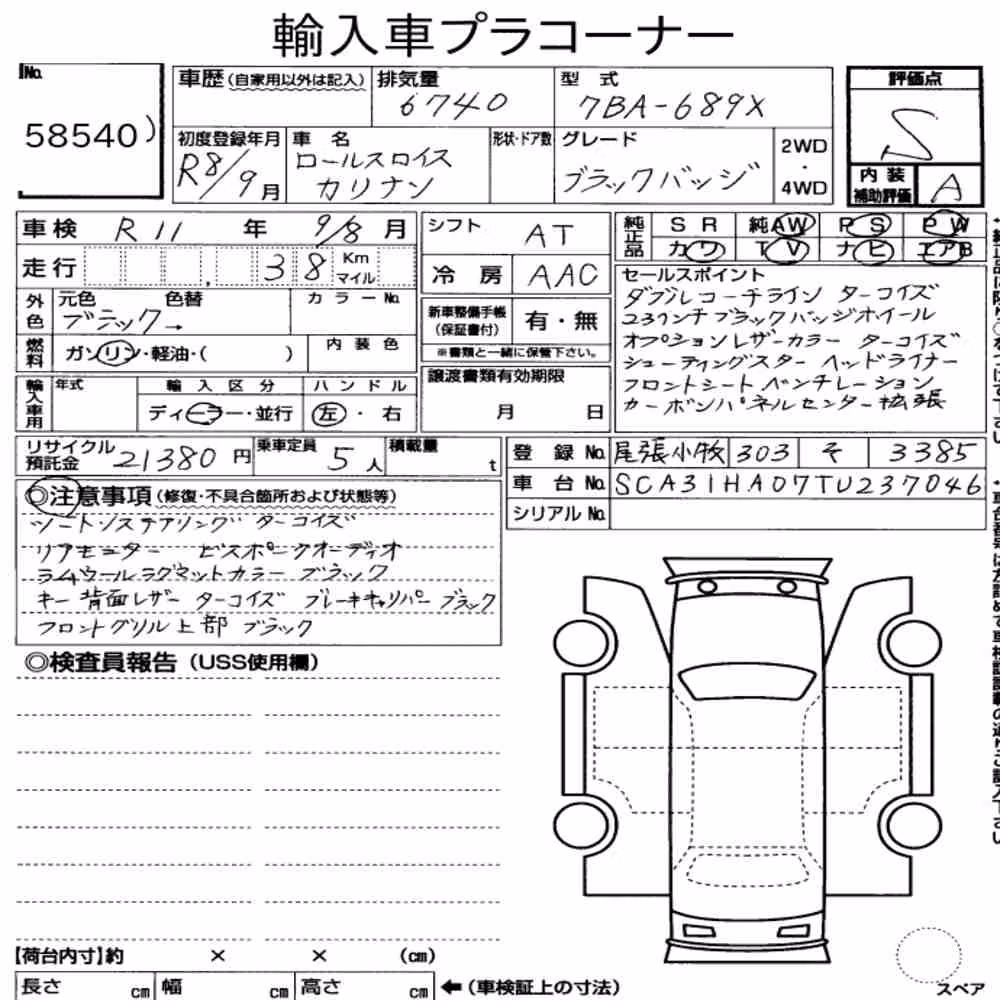 輸入車プラコーナー
No.
58540)
車歴(自家用以外は記入)
排気量
6740
型 式
7BA-689X
評価点
S
内装補助評価
A
初度登録年月
R8/9月
車 名
ロールスロイス
カリナン
形状・ドア数
グレード
ブラックバッジ
2WD
・
4WD
車検 R11 年 9/8 月
走行 , 38 Km マイル
外色 元色 色替 カラーNo.
ブラック→
燃料 ガソリン・軽油・( ) 内装色
輸入車用 年式 輸入区分 ハンドル
ディーラー・並行 左・右
シフト AT
冷房 AAC
新車整備手帳(保証書付) 有・無
※書類と一緒に保管下さい。
譲渡書類有効期限
月 日
純正品 SR 純AW PS PW
カワ TV ナビ エアB
セールスポイント
ダブルコーチライン ターコイズ
23インチブラックバッジホイール
オプションレザーカラー ターコイズ
シューティングスター ヘッドライナー
フロントシート ベンチレーション
カーボンパネルセンター拡張
リサイクル預託金 21380円 乗車定員 5人 積載量 t
登録No. 尾張小牧 303 そ 3385
車台No. SCA31HA07TU237046
シリアルNo.
◎注意事項(修復・不具合箇所および状態等)
シート・ステアリング ターコイズ
リアモニター ビスポークオーディオ
ラムウールラグマットカラー ブラック
キー背面レザー ターコイズ ブレーキキャリパー ブラック
フロントグリル上部 ブラック
◎検査員報告(USS使用欄)
【荷台内寸】約 × × (cm)
長さ cm 幅 cm 高さ cm ←(車検証上の寸法)
スペア